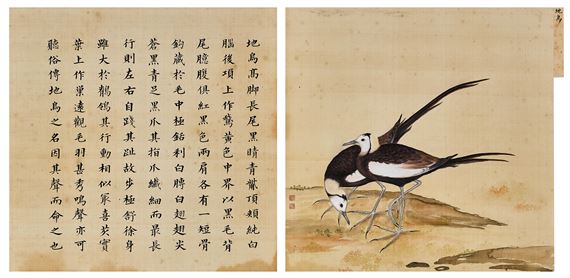 地烏
地烏高脚長尾黑睛青觜頂頰純白
腦後項上作鵞黃色中界以黑毛背
尾臆腹俱紅黑色兩肩各有一短骨
鈎藏於毛中極銛利白膊白翅翅尖
蒼黑青足黑爪其指爪纖細而最長
行則左右自踐其趾故步極舒徐身
雖大於鶺鴒其行動相似最喜芡實
葉上作巢遠觀毛羽甚秀鳴聲亦可
聽俗傳地烏之名因其聲而命之也